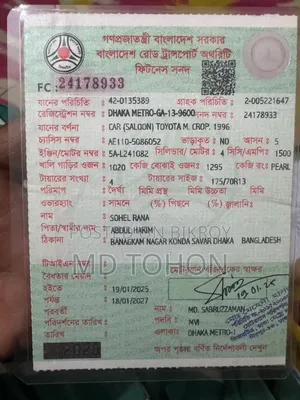 গণপ্রজাতন্ত্রী বাংলাদেশ সরকার
বাংলাদেশ রোড ট্রান্সপোর্ট অথরিটি
ফিটনেস সনদ
FC : 24178933
যানের পরিচিতি : 42-0135389 গ্রাহক পরিচিতি : 2-005221647
রেজিস্ট্রেশন নম্বর : DHAKA METRO-GA-13-9600 সনদ নম্বর : 24178933
যানের বর্ণনা : CAR (SALOON) TOYOTA M. CROP. 1996
চ্যাসিস নম্বর : AE110-5086052 ভাড়াকৃত : NO আসন : 5
ইঞ্জিন/মোটর নম্বর : 5A-L241082 সিলিন্ডার/মোটর : 4 সিসি/এএমপি : 1500
খালি গাড়ির ওজন : 1020 কেজি বোঝাই ওজন : 1295 কেজি রং: PEARL
টায়ারের সংখ্যা : 4 টায়ার সাইজ : 175/70R13
পরিমাপ : দৈর্ঘ্য মিমি প্রস্থ মিমি উচ্চতা মিমি
ওভারহ্যাং : সামনে (%) পিছনে (%) ডানে(%) বামে(%)
নাম : SOHEL RANA
পিতা/স্বামীর নাম : ABDUL HAKIM
ঠিকানা : BANAGRAM NAGAR KONDA SAVAR DHAKA BANGLADESH
POSTED ON BIKROY
MD TOHON
টিআইএন নম্বর :
বৈধতার মেয়াদ
হইতে : 19/01/2025
পর্যন্ত : 18/01/2027
পরবর্তী
পরিদর্শনের তারিখ :
মোটরযান পরিদর্শকের স্বাক্ষর
19.01.25
নাম : MD. SABRUZZAMAN
পদবি : MVI
এলাকা: DHAKA METRO-
অপর পৃষ্ঠায় বর্ণিত নির্দেশাবলী দেখুন